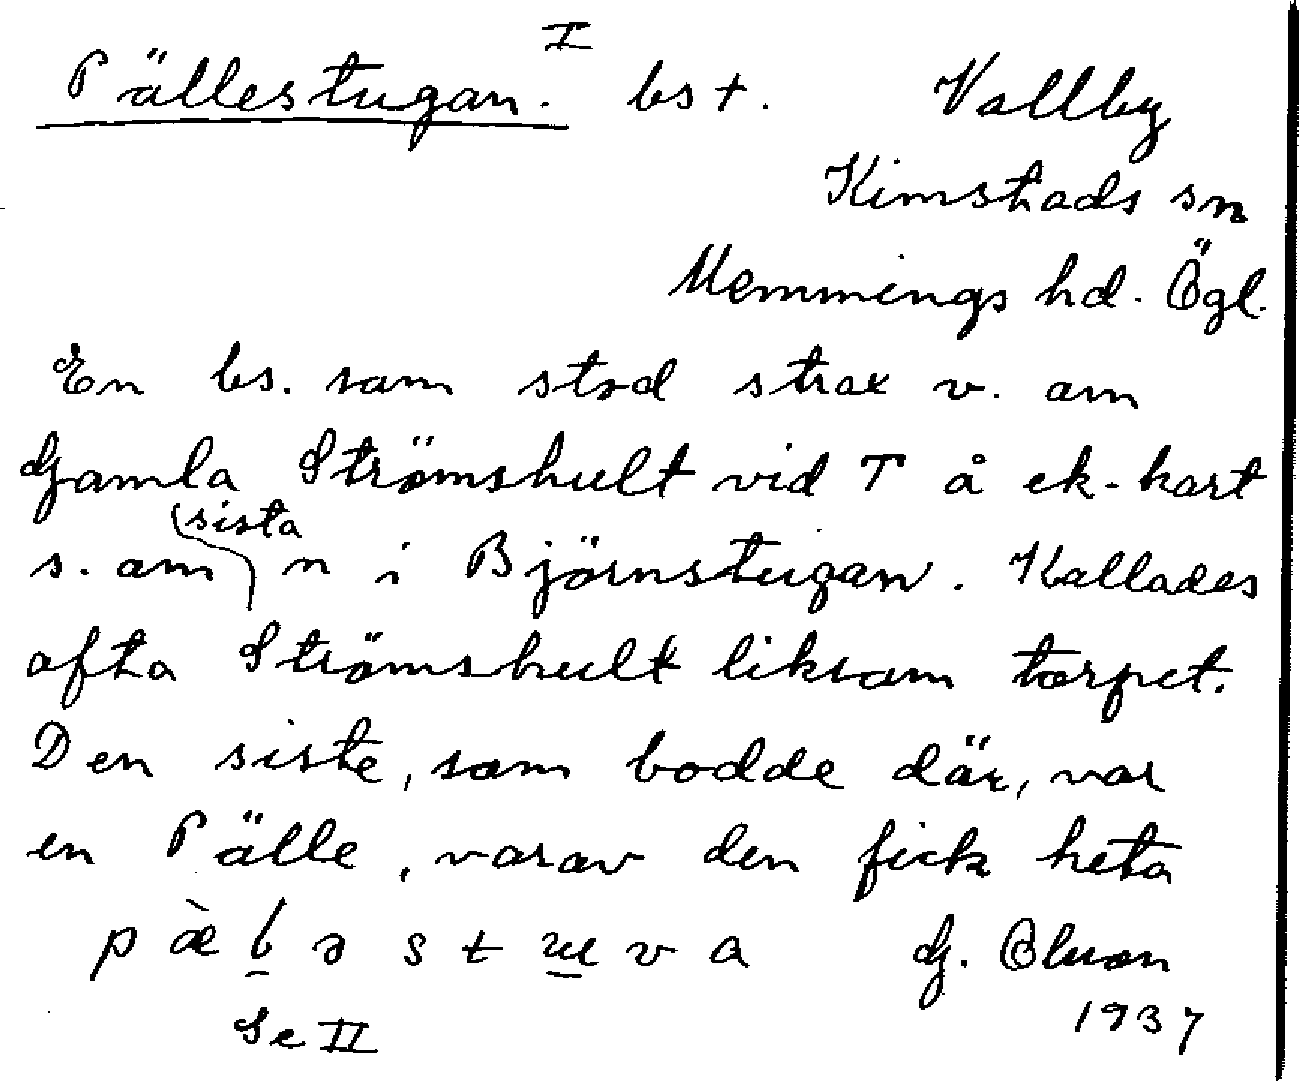 Pällestugan. I bst. Vallby
Kimstads sn
Memmings hd. Ögl.
En bs. som stod strax v. om
Gamla Strömshult vid T å ek-kart
s. om sista n i Björnstugan. Kallades
ofta Strömshult liksom torpet.
Den siste, som bodde där, var
en Pälle, varav den fick heta
G. Olson
Se II 1937